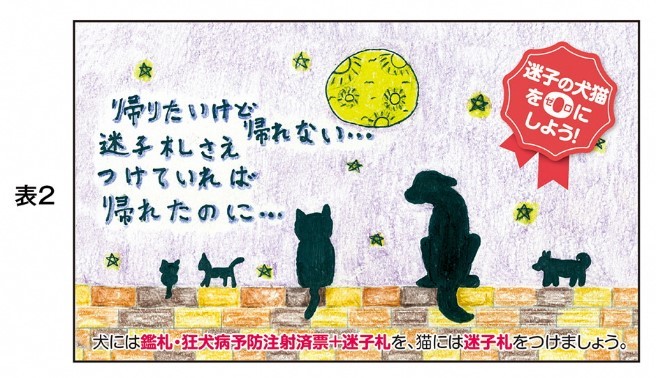 表2
帰りたいけど
帰れない…
迷子札さえ
つけていれば
帰れたのに…
迷子の犬猫
を0ゼロに
しよう!
犬には鑑札・狂犬病予防注射済票+迷子札を、猫には迷子札をつけましょう。